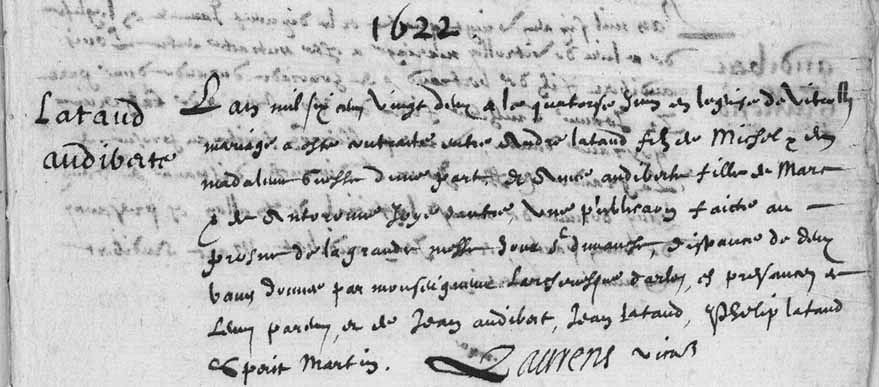 1622
Lataud
audiberte
Lan mil six cen vingt deux & le quatorse Juin en leglise de vitrolle
mariage a esté contraité entre Andre lataud filz de Michel & de
madaleine d'une part, et Anne audiberte fille de Marc
& de Antoronne d'autre une publicaon faicte au
prosne de la grande messe Jour de dimanche, dispance de deux
bans donnee par monseigneur Larchevesque darles, en presances de
Leurs parens, et de Jean audibert, Jean Lataud, Phelip lataud
Esperit Martin. Laurens vicaire